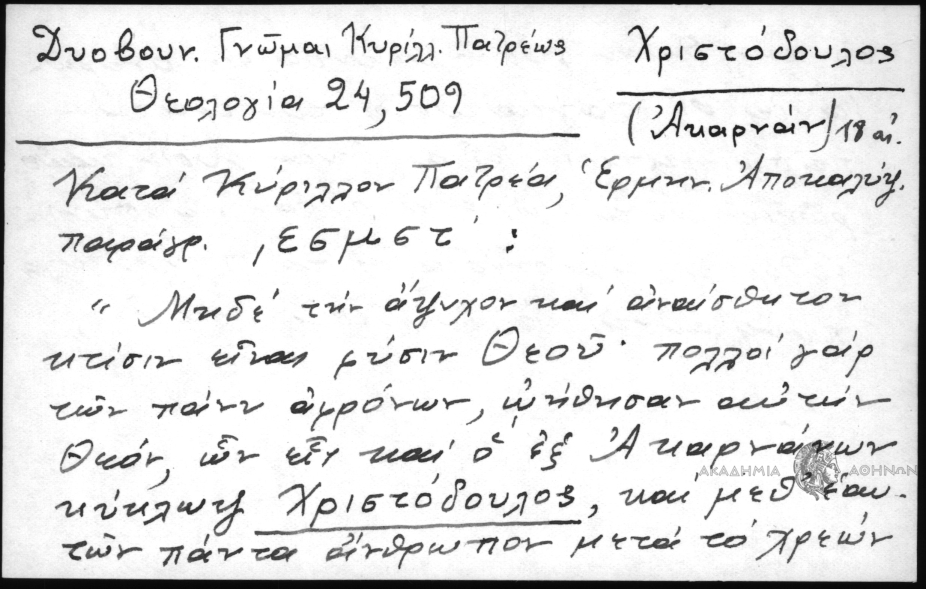 Δυοβουν. Γνῶμαι Κυρίλλ. Πατρέως
Θεολογία 24, 509
Χριστόδουλος
(Ἀκαρνάν) 18 αἰ.
Κατά Κύριλλον Πατρέα, Ἑρμην. Ἀποκαλύψ.
παράγρ. ͵εσμστ΄ :
"Μηδέ τήν ἄψυχον καί ἀναίσθητον
κτίσιν εἶναι φύσιν Θεοῦ· πολλοί γάρ
τῶν πάνυ ἀφρόνων, ᾠήθησαν αὐτήν
Θεόν, ὧν εἷς καί ὁ ἐξ Ἀκαρνάνων
κύκλωψ Χριστόδουλος, καί μεθ' ἑαυ-
τῶν πάντα ἄνθρωπον μετά τό χρεών
ΑΚΑΔΗΜΙΑ ΑΘΗΝΩΝ